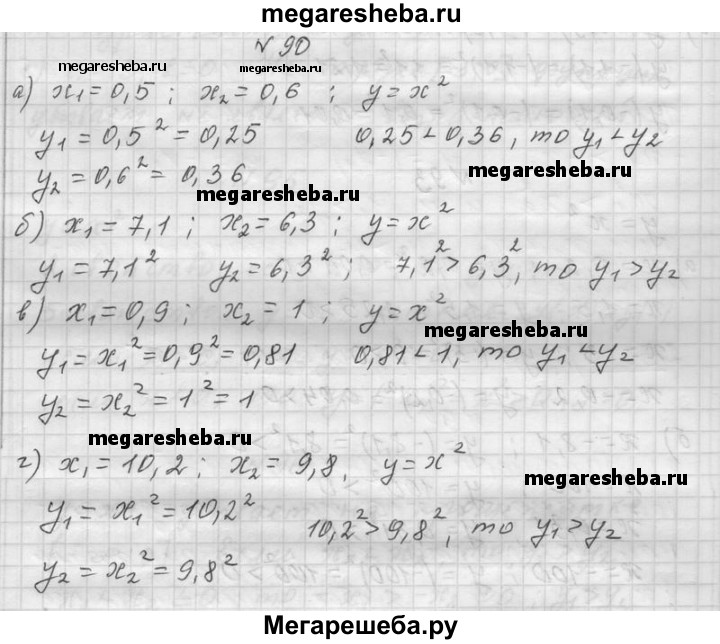 megaresheba.ru
№ 90
megaresheba.ru megaresheba.ru
а) x₁ = 0,5 ; x₂ = 0,6 ; y = x²
y₁ = 0,5² = 0,25 0,25 < 0,36, то y₁ < y₂
megaresheba.ru
y₂ = 0,6² = 0,36
megaresheba.ru
б) x₁ = 7,1 ; x₂ = 6,3 ; y = x²
y₁ = 7,1² y₂ = 6,3² ; 7,1² > 6,3², то y₁ > y₂
в) x₁ = 0,9 ; x₂ = 1 ; y = x²
megaresheba.ru
y₁ = x₁² = 0,9² = 0,81 0,81 < 1, то y₁ < y₂
y₂ = x₂² = 1² = 1
megaresheba.ru
г) x₁ = 10,2 ; x₂ = 9,8, y = x²
megaresheba.ru
y₁ = x₁² = 10,2²
10,2² > 9,8², то y₁ > y₂
y₂ = x₂² = 9,8²
Мегарешеба.ру